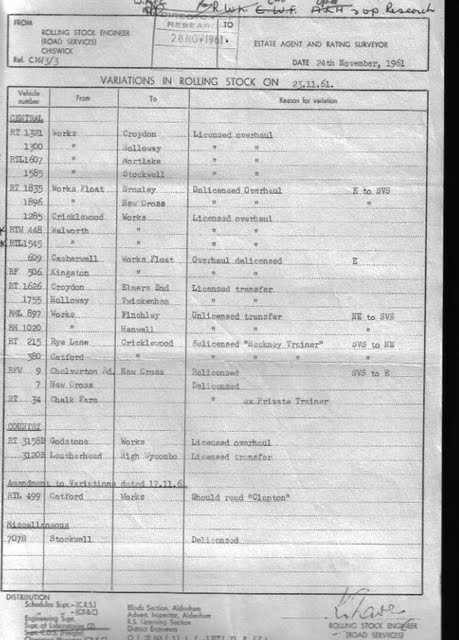 R.W.K E.W.F. A.K.H s.op Research
FROM
ROLLING STOCK ENGINEER
(ROAD SERVICES)
CHISWICK
Ref. C16/3/3
DIRECTOR
RESEARCH
28 NOV 1961
TO
ESTATE AGENT AND RATING SURVEYOR
DATE 24th November, 1961
VARIATIONS IN ROLLING STOCK ON 23.11.61.
Vehicle number From To Reason for variation
CENTRAL
RT 1321 Works Croydon Licensed overhaul
1300 " Holloway " "
RTL1607 " Mortlake " "
1585 " Stockwell " "
RT 1835 Works Float Bromley Unlicensed Overhaul E to SVS
1896 " New Cross " " "
1285 Cricklewood Works Licensed overhaul
RTW 448 Walworth " " "
RTL1545 " " " "
609 Camberwell Works Float Overhaul delicensed E
RF 506 Kingston " " "
RT 1626 Croydon Elmers End Licensed transfer
1755 Holloway Twickenham " "
RML 897 Works Finchley Unlicensed transfer NE to SVS
RM 1020 " Hanwell " " "
RT 215 Rye Lane Cricklewood Relicensed "Hackney Trainer" SVS to NE
380 Catford " " " " "
RFW 9 Chelverton Rd. New Cross Relicensed SVS to E
7 New Cross Delicensed
RT 34 Chalk Farm " ex Private Trainer
COUNTRY
RT 3158B Godstone Works Licensed overhaul
3120B Leatherhead High Wycombe Licensed transfer
Amendment to Variations dated 17.11.6
RTL 499 Catford Works Should read "Clapton"
Miscellaneous
707B Stockwell Delicensed
DISTRIBUTION
Schedules Supt. - (C.R.S.)
" " - (CR&C)
Engineering Supt.
Supt. of Laboratories (2)
Supt. C.D.S. (Freight)
Blinds Section, Aldenham
Advert. Inspector, Aldenham
R.S. Licensing Section
District Engineers
ROLLING STOCK ENGINEER
(ROAD SERVICES)